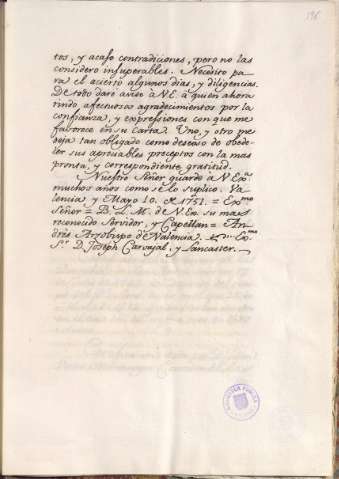 196
tos, y acaso contradiciones, pero no las
considero insuperables. Necesito pa-
ra el acierto algunos dias, y diligencias.
De todo daré aviso à V.E. à quien ahora
rindo afectuosos agradecimientos por la
confianza, y expressiones con que me
faborece en su Carta. Uno, y otro me
deja tan obligado como deseoso de obede-
cer sus apreciables preceptos con la mas
prompta, y correspondiente gratitud.
Nuestro Señor guarde à V Exª
muchos años como se lo suplico. Va-
lencia y Mayo 10. de 1751. = Exmo
Señor = B. L. M. de V Ex. su mas
reconocido Servidor, y Capellan = An-
drés Arzobispo de Valencia. = Exmo
Sr. D. Joseph Carvajal, y Lancaster.